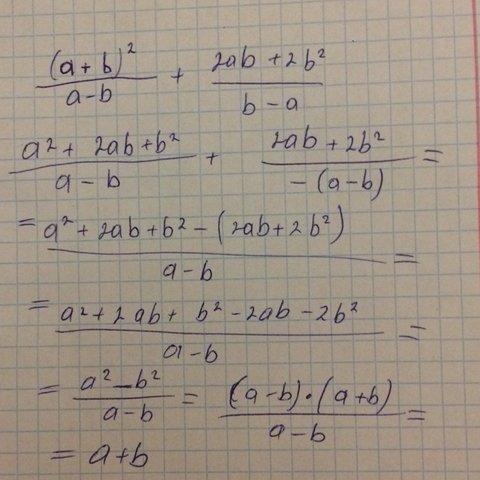 (a+b)²/(a-b) + (2ab+2b²)/(b-a)
(a²+2ab+b²)/(a-b) + (2ab+2b²)/(-(a-b)) =
= (a²+2ab+b²-(2ab+2b²))/(a-b) =
= (a²+2ab+b²-2ab-2b²)/(a-b) =
= (a²-b²)/(a-b) = ((a-b)·(a+b))/(a-b) =
= a+b